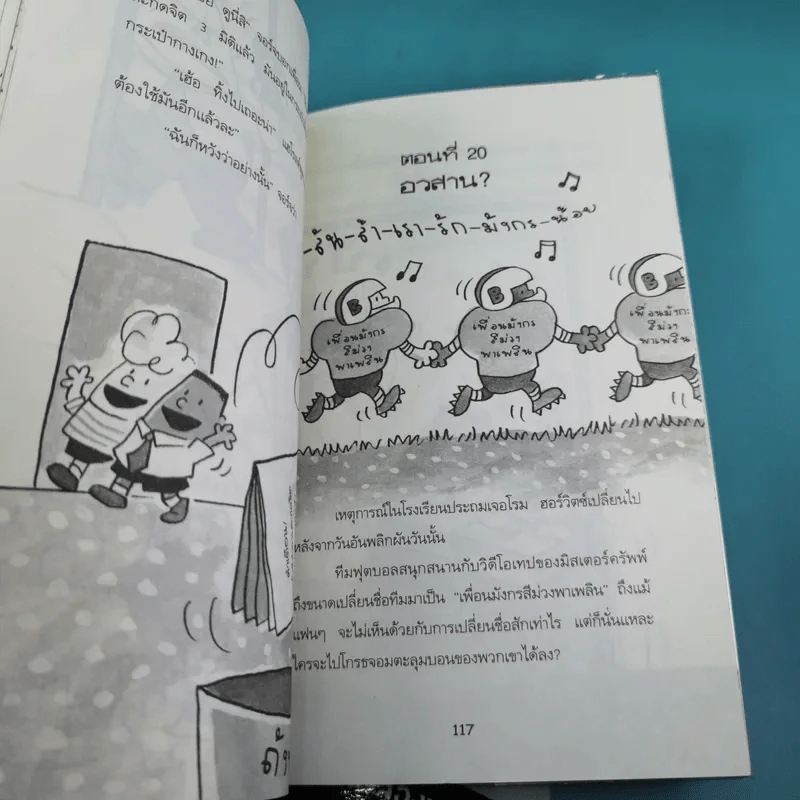 ดูนี่สิ" จอร์จบอกเพื่อน
สะกดจิต 3 มิติแล้ว มันอยู่ใน
กระเป๋ากางเกง!"
"เฮ้อ ทิ้งไปเถอะน่า"
ต้องใช้มันอีกแล้วละ"
"ฉันก็หวังว่าอย่างนั้น" จอร์จว่า
ตอนที่ 20
อวสาน?
รื่น-ร่ำ-เรา-รัก-มังกร-น้อย
B
เพื่อนมังกร
สีม่วง
พาเพลิน
B
เพื่อนมังกร
สีม่วง
พาเพลิน
B
เพื่อนมังกร
สีม่วง
พาเพลิน
เหตุการณ์ในโรงเรียนประถมเจอโรม ฮอร์วิตซ์เปลี่ยนไป
หลังจากวันอันพลิกผันวันนั้น
ทีมฟุตบอลสนุกสนานกับวิดีโอเทปของมิสเตอร์ครัพพ์
ถึงขนาดเปลี่ยนชื่อทีมมาเป็น "เพื่อนมังกรสีม่วงพาเพลิน" ถึงแม้
แฟนๆ จะไม่เห็นด้วยกับการเปลี่ยนชื่อสักเท่าไร แต่ก็นั่นแหละ
ใครจะไปโกรธจอมตะลุมบอนของพวกเขาได้ลง?
117